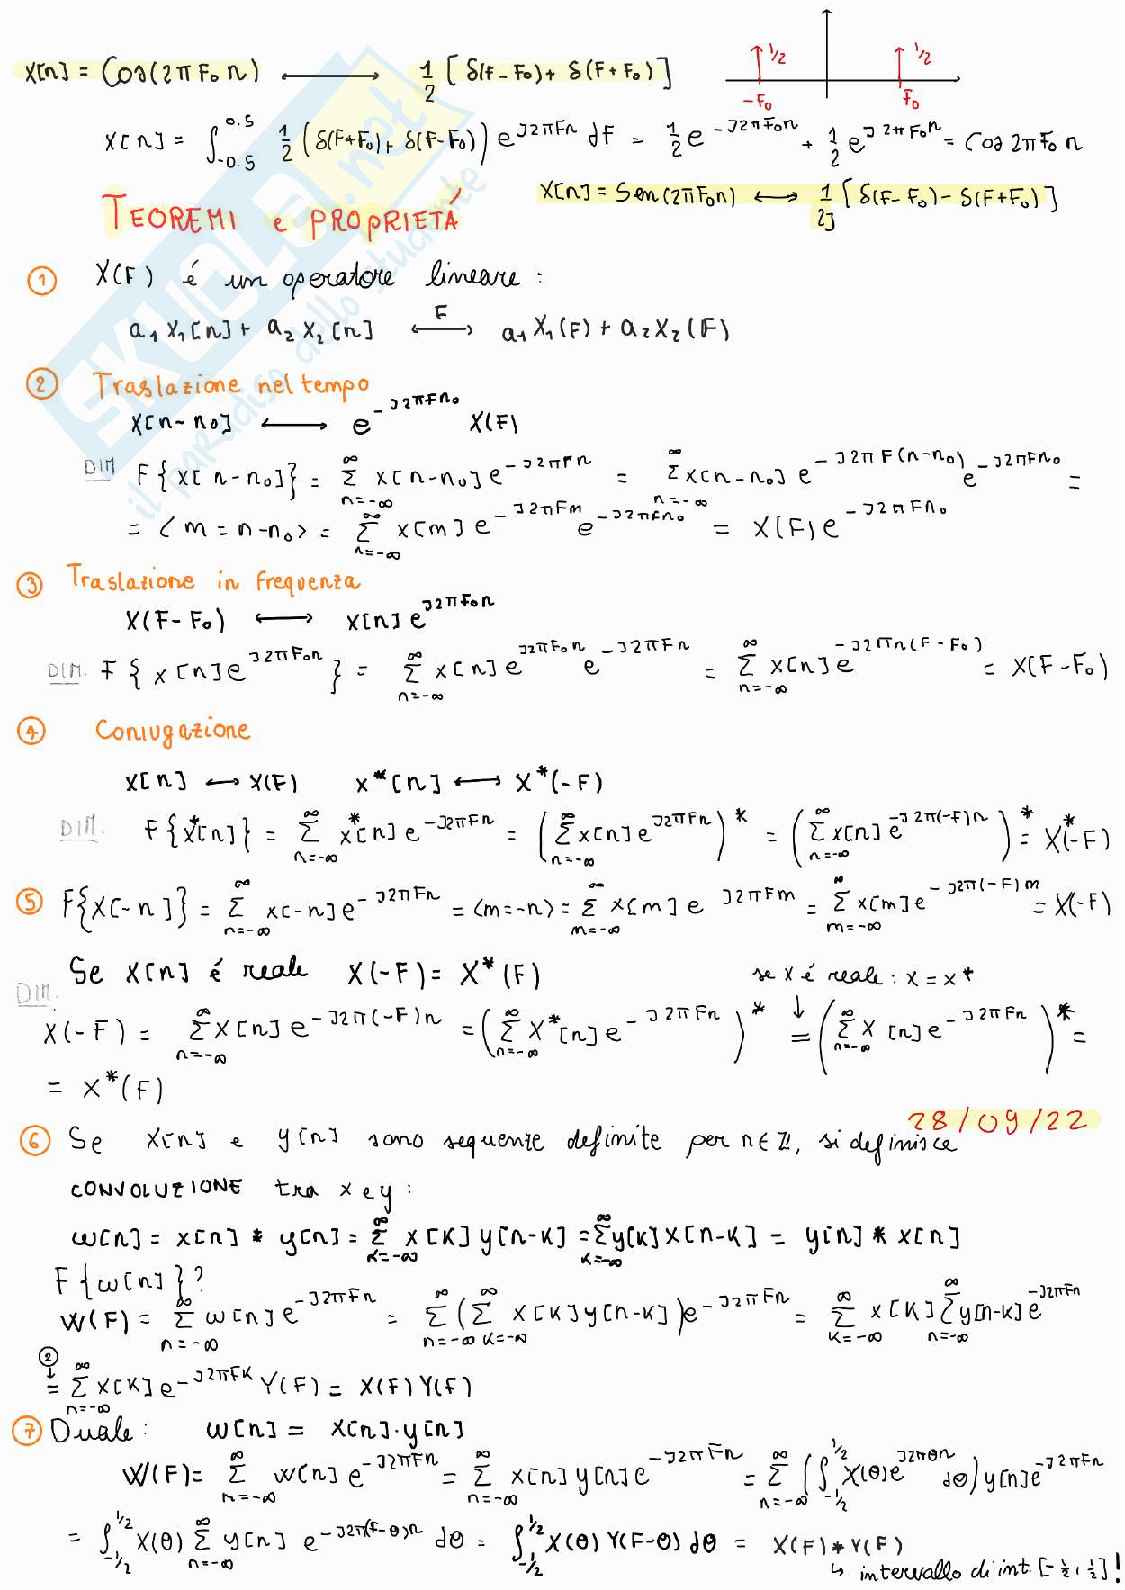 x[n] = Cos(2πF₀n) ⟷ 1/2 [δ(F-F₀) + δ(F+F₀)]
1/2 1/2
-F₀ F₀
x[n] = ∫_{-0.5}^{0.5} 1/2 (δ(F+F₀) + δ(F-F₀)) e^{J2πFn} dF = 1/2 e^{-J2πF₀n} + 1/2 e^{J2πF₀n} = Cos 2πF₀n
x[n] = Sen(2πF₀n) ⟷ 1/2J [δ(F-F₀) - δ(F+F₀)]
TEOREMI e PROPRIETÁ
① X(F) é un operatore lineare :
a₁x₁[n] + a₂x₂[n] ⟷^F a₁X₁(F) + a₂X₂(F)
② Traslazione nel tempo
x[n-n₀] ⟷ e^{-J2πFn₀} X(F)
DIM F{x[n-n₀]} = Σ_{n=-∞}^{∞} x[n-n₀] e^{-J2πFn} = Σ_{n=-∞}^{∞} x[n-n₀] e^{-J2πF(n-n₀)} e^{-J2πFn₀} =
= <m = n-n₀> = Σ_{n=-∞}^{∞} x[m] e^{-J2πFm} e^{-J2πFn₀} = X(F) e^{-J2πFn₀}
③ Traslazione in frequenza
X(F-F₀) ⟷ x[n] e^{J2πF₀n}
DIM. F{x[n] e^{J2πF₀n}} = Σ_{n=-∞}^{∞} x[n] e^{J2πF₀n} e^{-J2πFn} = Σ_{n=-∞}^{∞} x[n] e^{-J2πn(F-F₀)} = X(F-F₀)
④ Coniugazione
x[n] ⟷ X(F) x*[n] ⟷ X*(-F)
DIM. F{x*[n]} = Σ_{n=-∞}^{∞} x*[n] e^{-J2πFn} = (Σ_{n=-∞}^{∞} x[n] e^{J2πFn})* = (Σ_{n=-∞}^{∞} x[n] e^{-J2π(-F)n})* = X*(-F)
⑤ F{x[-n]} = Σ_{n=-∞}^{∞} x[-n] e^{-J2πFn} = <m=-n> = Σ_{m=-∞}^{∞} x[m] e^{J2πFm} = Σ_{m=-∞}^{∞} x[m] e^{-J2π(-F)m} = X(-F)
Se x[n] é reale X(-F) = X*(F) se x é reale : x = x*
DIM.
X(-F) = Σ_{n=-∞}^{∞} x[n] e^{-J2π(-F)n} = (Σ_{n=-∞}^{∞} x*[n] e^{-J2πFn})* ↓= (Σ_{n=-∞}^{∞} x[n] e^{-J2πFn})* =
= X*(F)
28/09/22
⑥ Se x[n] e y[n] sono sequenze definite per n∈ℤ, si definisce
CONVOLUZIONE tra x e y :
w[n] = x[n] * y[n] = Σ_{k=-∞}^{∞} x[k] y[n-k] = Σ_{k=-∞}^{∞} y[k] x[n-k] = y[n] * x[n]
F{w[n]}?
W(F) = Σ_{n=-∞}^{∞} w[n] e^{-J2πFn} = Σ_{n=-∞}^{∞} (Σ_{k=-∞}^{∞} x[k] y[n-k]) e^{-J2πFn} = Σ_{k=-∞}^{∞} x[k] Σ_{n=-∞}^{∞} y[n-k] e^{-J2πFn}
② ↓
= Σ_{n=-∞}^{∞} x[k] e^{-J2πFk} Y(F) = X(F) Y(F)
⑦ Duale : w[n] = x[n]·y[n]
W(F) = Σ_{n=-∞}^{∞} w[n] e^{-J2πFn} = Σ_{n=-∞}^{∞} x[n] y[n] e^{-J2πFn} = Σ_{n=-∞}^{∞} (∫_{-1/2}^{1/2} X(θ) e^{J2πθn} dθ) y[n] e^{-J2πFn}
= ∫_{-1/2}^{1/2} X(θ) Σ_{n=-∞}^{∞} y[n] e^{-J2π(F-θ)n} dθ = ∫_{-1/2}^{1/2} X(θ) Y(F-θ) dθ = X(F) * Y(F)
↳ intervallo di int [-1/2, 1/2] !
SKUOLA.net
il paradiso dello studente